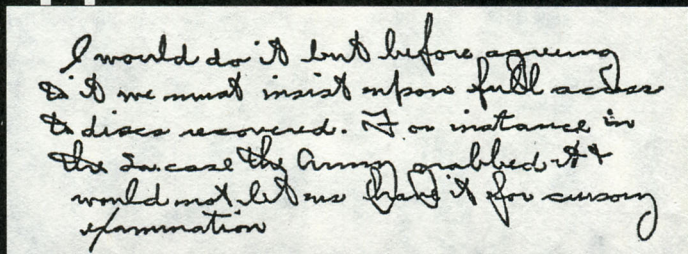 I would do it but before agreeing
to it we must insist upon full access
to discs recovered. For instance in
the case the Army grabbed it &
would not let us have it for cursory
examination